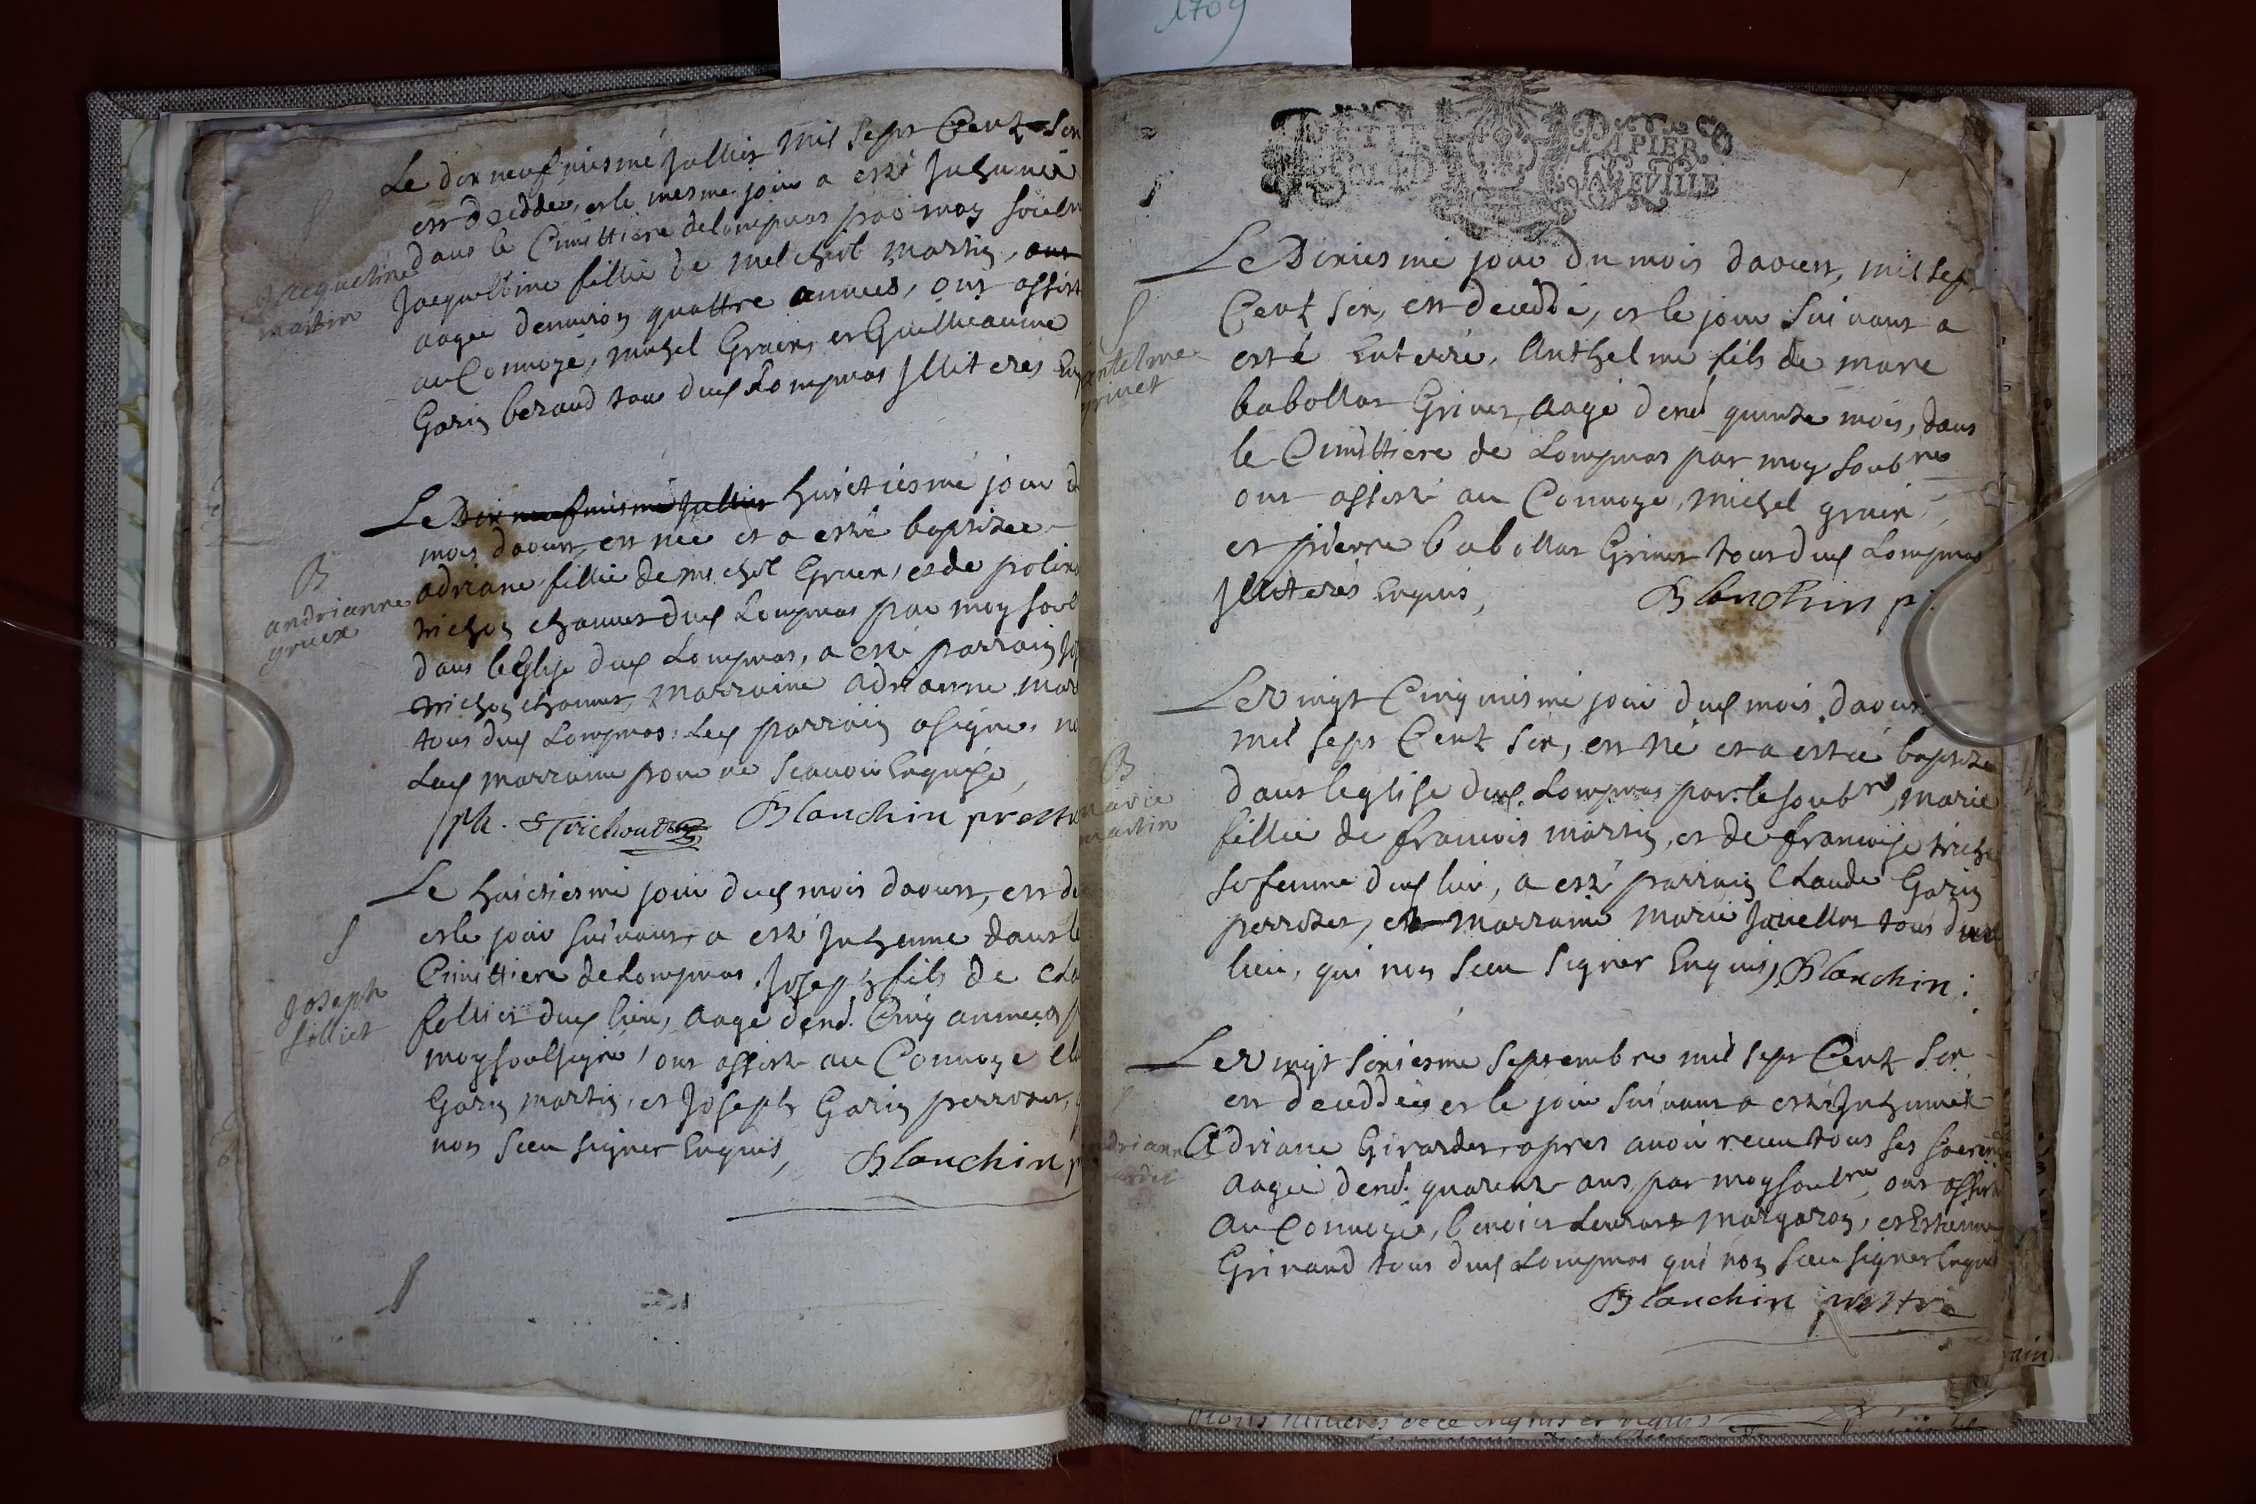 1709
Le dix neufviesme Julliet mil sept Cent Six
est deceddée, et le mesme jour a esté Inhumée
dans le Cimittiere de Lompnas par moy soubs
Jacqueline fillie de Melchiol Martin,
aagée denuiron quattre années, ont assisté
au Conuoye, Michel Gruen, et Guillieaume
Garin beraud tous dud Lompnas Illiterés Enq
Jacqueline
martin
Le huictiesme jour d
mois daoust, est née et a esté baptisee
adriane fillie de Michel Gruen, et de
trichon chanut dud Lompnas par moy soub
dans leglise dud Lompnas, a esté parrain Jos
trichon chanut, marraine adrianne mar
tous dud Lompnas, led parrain a signé, n
lad marraine pour ne scauoir Enquise,
B
andrianne
gruex
Blanchin prestre
Le huictiesme jour dud mois daoust, est d
et le jour suiuant, a esté Inhumé dans le
Cimittiere de Lompnas, Joseph fils de Cla
folliet dud lieu, aagé denu. Cinq années p
moy soulsigné, ont assisté au Conuoye Cla
Garin martin, et Joseph Garin perrozet, q
non sceu signer Enquis, Blanchin p
S
Joseph
folliet
PETIT PAPIER
LAVEVILLE
Le Dixiesme jour du mois daoust, mil sept
Cent Six, est deceddé, et le jour suiuant a
esté Enterré, Anthelme fils de marc
babollat Grinet, aagé denu quinze mois, dans
le Cimittiere de Lompnas par moy soubné
ont assisté au Conuoye, Michel gruin,
et pierre babollat Grinet tous dud Lompnas
Illiterés Enquis, Blanchin p.
S
antelme
grinet
Le vingt Cinquiesme jour dud mois daoust
mil sept Cent Six, est né et a esté baptizée
dans leglise dud. Lompnas par le soubné, marie
fillie de francois martin, et de francoise trich
sa femme dud lieu, a esté parrain Claude Garin
perrozet, et marraine marie Jauellot tous dud
lieu, qui non sceu signer Enquis, Blanchin.
B
marie
martin
Le vingt sixiesme septembre mil sept Cent Six
est deceddée et le jour suiuant a esté Inhumée
Adriane Girardet, apres auoir receu tous ses sacrem
aagée denu. quarente ans, par moy soubné, ont assisté
au Conuoye, benoict margaron, et Estienne
Grinand tous dud Lompnas qui non sceu signer Enquis
Blanchin prestre